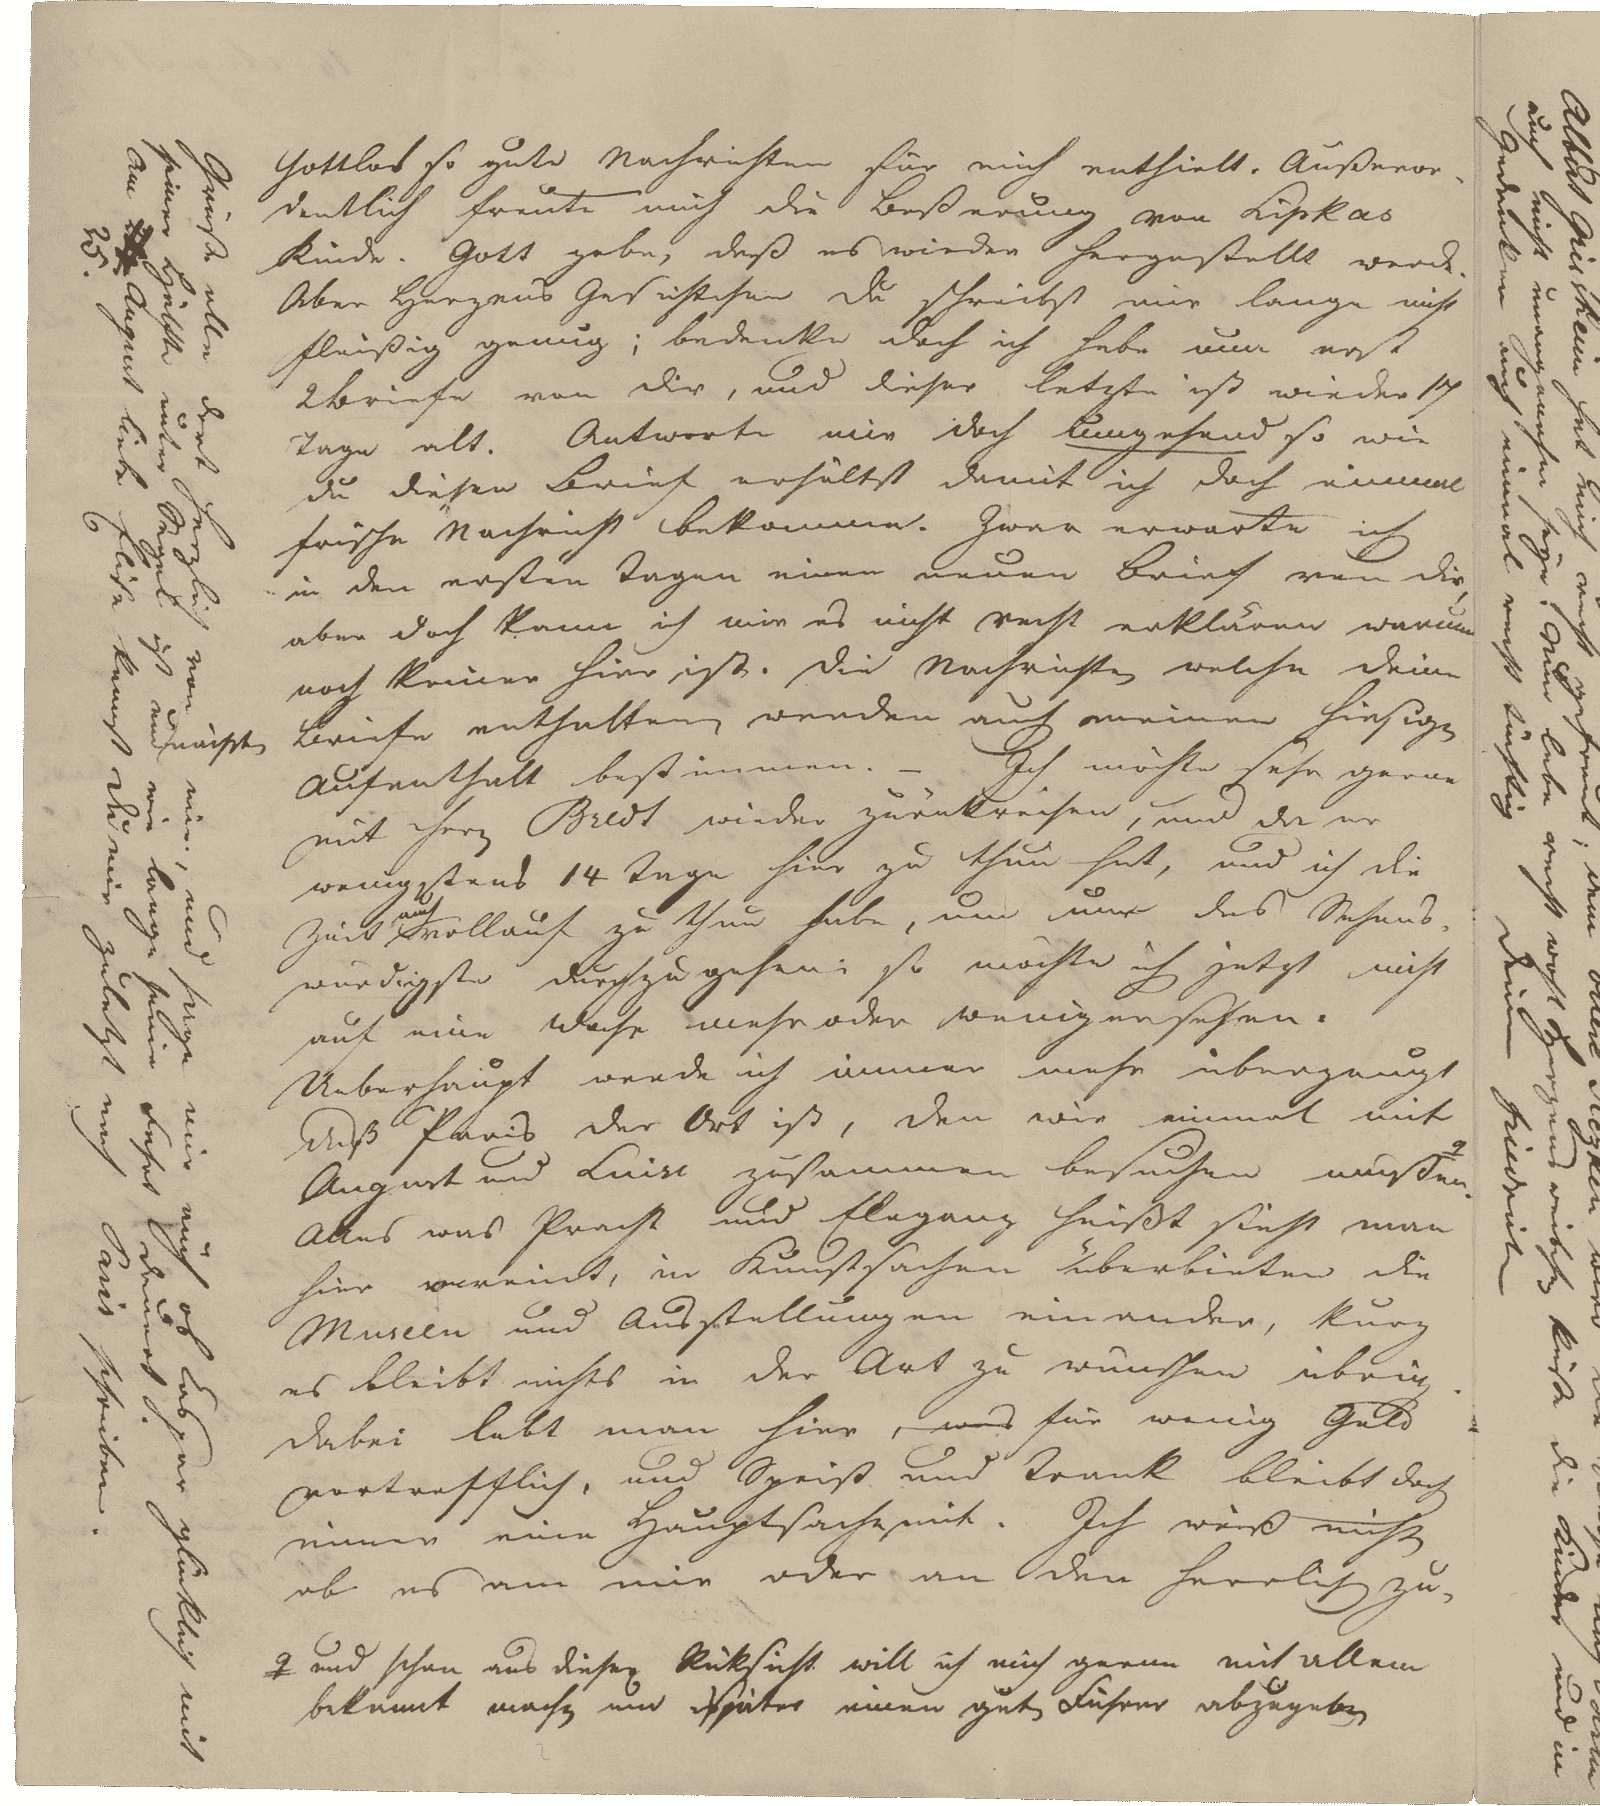 Gottlob so gute Nachrichten für mich enthielt. Außeror-
dentlich freute mich die Beßerung von Lipkas
Kinde. Gott gebe, daß es wieder hergestellt werde.
Aber Herzens Gesichtchen du schreibst mir lange nicht
fleißig genug; bedenke doch ich habe nun erst
2 Briefe von dir, und dieser letzte ist wieder 17
Tage alt. Antworte mir doch umgehend so wie
du diesen Brief erhältst damit ich doch einmal
frische Nachricht bekomme. Zwar erwarte ich
in den ersten Tagen einen neuen Brief von dir,
aber doch kann ich mir es nicht recht erklären warum
noch keiner hier ist. Die Nachrichten welche deine
nächsten
Briefe enthalten, werden auch meinen hiesigen
Aufenthalt bestimmen. – Ich möchte sehr gerne
mit Herrn Bredt wieder zurükreisen, und da er
wenigstens 14 Tage hier zu thun hat, und ich die
Zeit auch vollauf zu thun habe, um nur das Sehens-
würdigste durchzugehen: so möchte ich jetzt nicht
auf eine Woche mehr oder weniger sehen.
Ueberhaupt werde ich immer mehr überzeugt
daß Paris der Ort ist, den wir einmal mit
August und Luise zusammen besuchen müßen.
Alles was Pracht und Eleganz heißt sieht man
hier vereint, in Kunstsachen überbieten die
Museen und Ausstellungen einander, kurz
es bleibt nichts in der Art zu wünschen übrig.
Dabei lebt man hier, was für wenig Geld
vortrefflich, und Speiß und Trank bleibt doch
immer eine Hauptsache mit. Ich weiß nicht
ob es an mir oder an den herrlich zu-
und schon aus dieser Rüksicht will ich mich gerne mit allem
bekannt machen um später einen guten Führer abzugeben
Grüße alle dort herzlich von mir, und sage mir auch ob Caspar glücklich mit
seiner Hälfte unter Segel ist und wie lange seine Fahrt dauert.
Am August liebe kannst du mir zuletzt nach Paris schreiben.
25.
Albert Grüschein hat mich recht gefreut;
auch nicht unangenehm seyn. Nun lebe recht wohl Herzens weibchen küsse die Kinder und in
Gedanken auch einmal recht tüchtig Deinen Friedrich